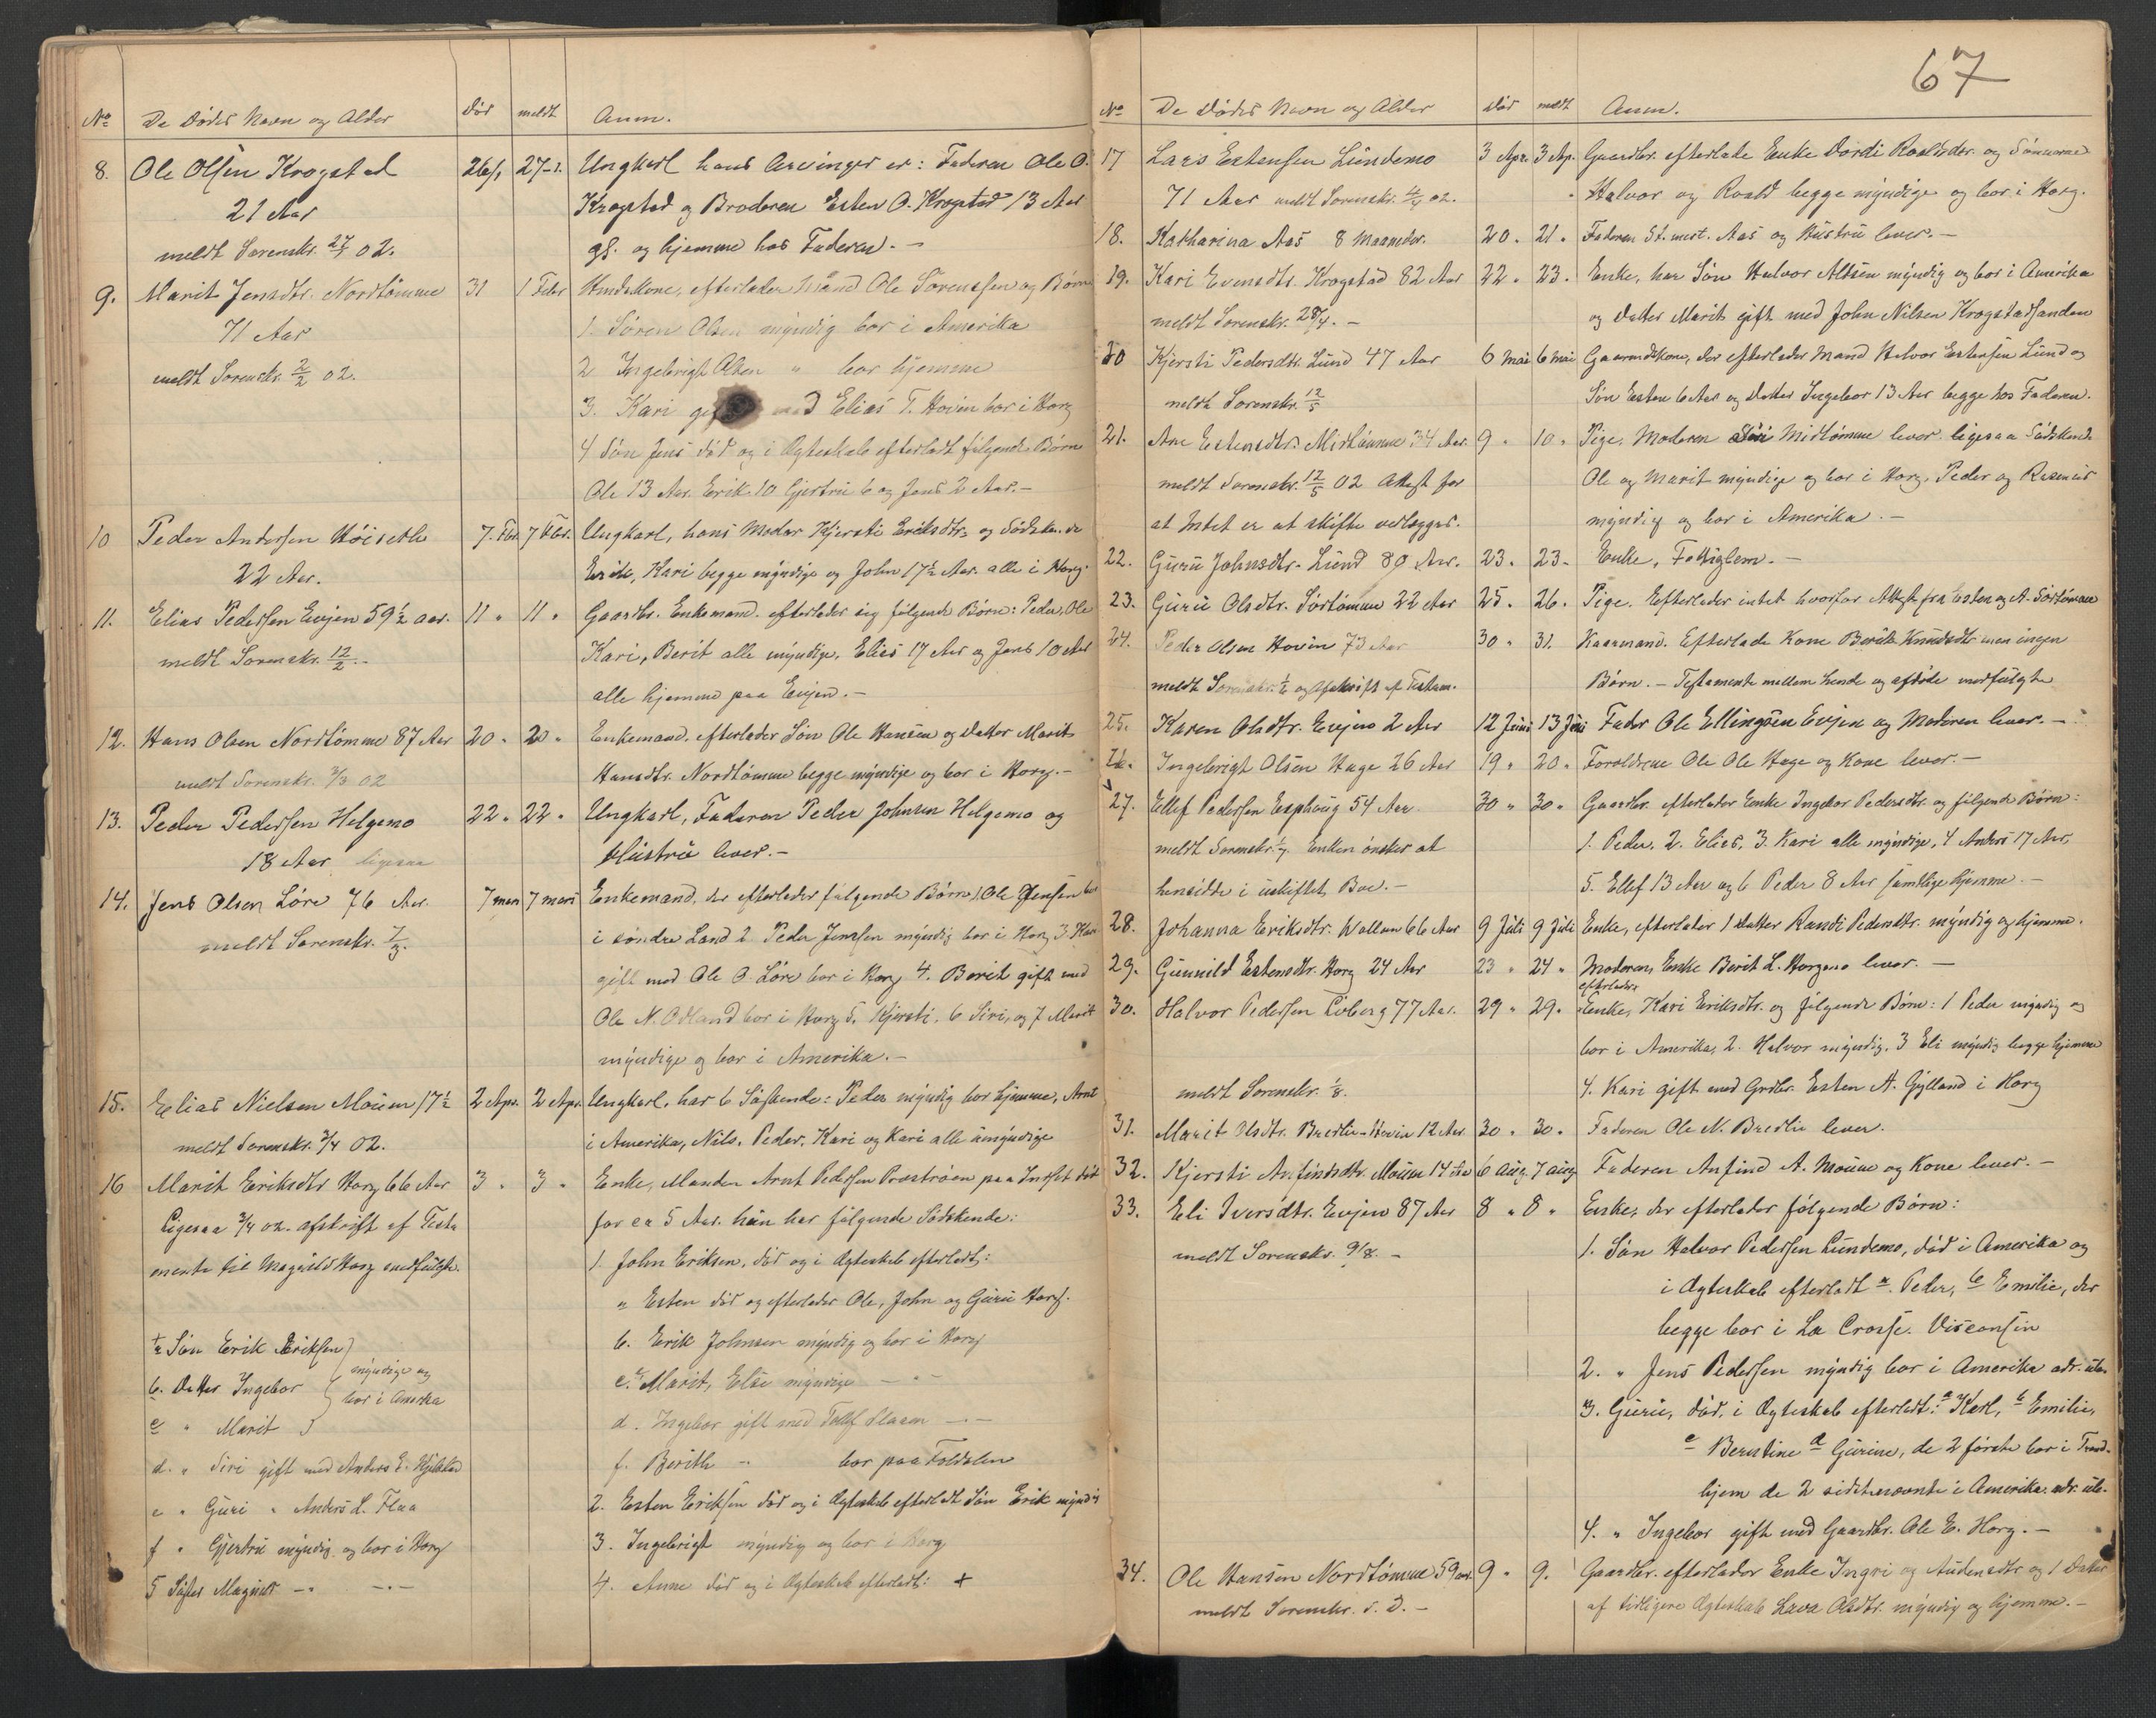 67
No De Dødes Navn og Alder Død meldt Anm.
8. Ole Olsen Krogstad 26/1 27-1. Ungkarl hans Arvinger er: Faderen Ole O.
21 Aar Krogstad og Broderen Esten O. Krogstad 13 Aar
meldt Sorenskr. 27/1 02. gl. og hjemme hos Faderen. -
9. Marit Jensdtr. Nordtømme 31 1 Febr efterlader Mand Ole Sørenssen og Børn
71 Aar 1. Søren Olsen myndig bor i Amerika
meldt Sorenskr. 2/2 02. 2 Ingebrigt Olsen " bor hjemme
3. Kari gift med Elias T. Hovin bor i Horg
4 Søn Jens død og i Ægteskab efterladt følgende Børn
Ole 13 Aar. Erik 10 Gjertru 6 og Jens 2 Aar. -
10 Peder Andersen Høiseth 7. Fbr. 7 Fbr. Ungkarl, hans Moder Kjersti Eriksdtr. og Sødskende
22 Aar. Erik, Kari begge myndige og John 17½ Aar. alle i Horg.
11. Elias Pedersen Evjen 59½ aar. 11 " 11 " Gaardbr. Enkemand. efterlader sig følgende Børn: Peder, Ole
meldt Sorenskr. 12/2. Kari, Berit alle myndige, Elias 17 Aar og Jens 10 Aar
alle hjemme paa Evjen. -
12. Hans Olsen Nordtømme 87 Aar 20 " 20 " Enkemand. efterlader Søn Ole Hansen og Datter Marit
meldt Sorenskr. 3/3 02 Hansdtr. Nordtømme begge myndige og bor i Horg. -
13. Peder Pedersen Helgemo 22 " 22 " Ungkarl, Faderen Peder Johnsen Helgemo og
18 Aar ligesaa Hustru lever. -
14. Jens Olsen Løre 76 Aar. 7 mars 7 mars Enkemand, der efterlader følgende Børn 1. Ole Jensen bor
meldt Sorenskr. 7/3. i søndre Land 2 Peder Jenssen myndig bor i Horg 3 Kari
gift med Ole O. Løre bor i Horg 4. Berit gift med
Ole N. Odland bor i Horg 5. Kjersti, 6 Siri, og 7 Marit
myndige og bor i Amerika. -
15. Elias Nielsen Mouen 17½ 2 Apr. 2 Apr. Ungkarl, har 6 Søskende: Peder myndig bor hjemme, Arnt
meldt Sorenskr. 3/4 02. i Amerika, Nils, Peder, Kari og Kari alle umyndige
16 Marit Eriksdtr Horg 66 Aar 3 " 3 " Enke, Manden Arnt Pedersen Prøstrøen paa Indset død
Ligesaa 3/4 02. afskrift af Testa for ca 5 Aar. hun har følgende Sødskende:
mente til Magnild Horg medfulgte. 1. John Eriksen, død og i Ægteskab efterladt:
a Esten død og efterlader Ole, John og Guru Horg.
b. Erik Johnsen myndig og bor i Horg
c. Marit, Else myndige - " -
d. Ingebor gift med Tollef Flaaen - " -
f. Berith - " bor paa Foldalen
2. Esten Eriksen død og i Ægteskab efterladt Søn Erik myndig
3. Ingebrigt myndig og bor i Horg
4. Anne død og i Ægteskab efterladt: +
+ a Søn Erik Eriksen
b. Datter Ingebor } myndige og bor i Amerika
c " Marit
d. " Siri gift med Anders E. Hjilstad
e " Guri " Anders L. Flaa
f " Gjertru myndig og bor i Horg
5 Søster Magnild - " - " -
No De Dødes Navn og Alder Død meldt Anm.
17 Lars Estensen Lundemo 3 Apr. 3 Ap. Gaardbr. efterlade Enke Dordi Roaldsdr. og Sønnerne
71 Aar meldt Sorenskr. 4/4 02. Halvor og Roald begge myndige og bor i Horg.
18. Katharina Aas 8 Maaneder. 20 " 21 " Faderen St.mest. Aas og Hustru lever. -
19. Kari Evensdtr. Krogstad 82 Aar 22 " 23 " Enke, har Søn Halvor Altsen myndig og bor i Amerika
meldt Sorenskr. 28/4. - og Datter Marit gift med John Nilsen Krogstadsanden
20 Kjersti Pedersdtr. Lund 47 Aar 6 mai 6 mai Gaardmandskone, der efterlader Mand Halvor Estensen Lund og
meldt Sorenskr. 12/5 Søn Esten 6 Aar og Datter Ingebor 13 Aar begge hos Faderen.
21. Ane Estensdtr. Midtømme 34 Aar. 9 " 10 " Pige, Moderen Siri Midtømme lever. ligesaa Sødskende
meldt Sorenskr. 12/5 02 Attest for Ole og Marit myndige og bor i Horg, Peder og Rasmus
at Intet er at skifte vedlagges. myndig og bor i Amerika. -
22. Guru Johnsdtr. Lund 80 Aar. 23. 23. Enke, Fattiglem. -
23. Guru Olsdtr. Sørtømme 22 Aar 25. 26. Pige. Efterlader intet hvorfor Attest fra Esten og A. Sørtømme
24. Peder Olsen Hovin 73 Aar 30 " 31. Kaarmand. Efterlade Kone Berit Knudsdtr men ingen
meldt Sorenskr. og Afskrift af Testam. Børn. - Testamente mellem hende og afdøde medfulgte
25. Karen Olsdtr. Evjen 2 Aar 12 Juni 13 Juni Fader Ole Ellingsen Evjen og Moderen lever. -
26. Ingebrigt Olsen Hage 26 Aar 19 " 20 " Forældrene Ole Ole Hage og Kone lever. -
27. Ellef Pedersen Esphaug 54 Aar 30 " 30 " Gaardbr. efterlader Enke Ingebor Pedersdtr. og følgende Børn:
meldt Sorenskr. 1/7. Enken ønsker at 1. Peder, 2. Elias, 3. Kari alle myndige, 4 Anders 17 Aar,
hensidde i uskiftet Bo. - 5. Ellef 13 Aar og 6 Peder 8 Aar samtlige hjemme. -
28. Johanna Eriksdtr. Wollan 66 Aar 9 Juli 9 Juli Enke, efterlader 1 Datter Randi Pedersdtr. myndig og hjemme.
29. Gunnild Estensdtr. Horg 24 Aar 23 " 24 " Moderen, Enke Berit L. Horgen lever. -
30. Halvor Pedersen Liberg 77 Aar. 29 " 29 " efterlader Enke, Kari Eriksdtr. og følgende Børn: 1 Peder myndig og
bor i Amerika, 2. Halvor myndig. 3 Eli myndig begge hjemme
meldt Sorenskr. 1/8. 4. Kari gift med Grdbr. Esten A. Gylland i Horg
31. Marit Olsdtr. Bredlie-Hovin 12 Aar 30 " 30 " Faderen Ole N. Bredlie lever.
32. Kjersti Anfindsdtr. Mouen 14 Aar 6 Aug 7 aug Faderen Anfind A. Mouen og Kone lever. -
33. Eli Iversdtr. Evjen 87 Aar 8 " 8 " Enke, der efterlader følgende Børn:
meldt Sorenskr. 9/8. - 1. Søn Halvor Pedersen Lundemo, død i Amerika og
i Ægteskab efterladt a. Peder, b Emilie, der
begge bor i La Crosse. Visconsin
2. " Jens Pedersen myndig bor i Amerika adr. ube.
3. Guru, død, i Ægteskab efterladt: a Karl, b Emilie,
c Berntine d Gurine, de 2 første bor i Trond-
hjem de 2 sidstnævnte i Amerika. adr. ube.
4. " Ingebor gift med Gaardbr. Ole E. Horg. -
34. Ole Hansen Nordtømme 59 aar. 9 " 9. Gaardbr. efterlader Enke Ingri og Audensdtr og 1 Datter
meldt Sorenskr. s. D. - af tidligere Ægteskab Lava Olsdtr. myndig og hjemme. -